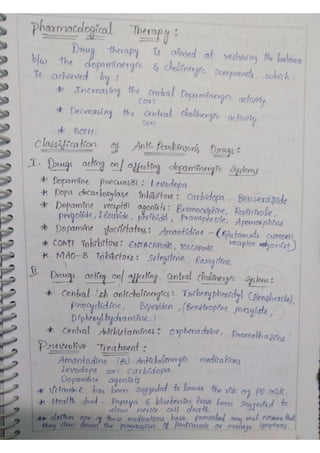 Pharmacological Therapy:
Drug therapy is aimed at restoring the balance
b/w the dopaminergic & cholinergic components, which
is achieved by:
* Increasing the central Dopaminergic activity
(or)
* Decreasing the central cholinergic activity
(or)
* BOTH.
Classification of Anti-Parkinson's Drugs:
I. Drugs acting on/affecting dopaminergic system
* Dopamine precursor: Levodopa
* Dopa decarboxylase inhibitors: Carbidopa, Benserazide
* Dopamine receptor agonists: Bromocriptine, Ropinirole,
pergolide, piribidil, Pramipexole, Apomorphine
* Dopamine facilitators: Amantidine - (Glutamate
receptor agonist)
* COMT inhibitors: ENTACAPONE, TOLCAPONE.
* MAO-B inhibitors: Selegiline, Rasagiline
II. Drugs acting on/affecting central cholinergic system:
* Central anticholinergics: Trihexyphenidyl (Benzhexol),
Procyclidine, Biperiden, (Benztropine mesylate,
Diphenylhydramine)
* Central Antihistamines: orphenadrine, Promethazine
Preventive Treatment:
Amantadine (or) Anticholinergic medications
Levodopa (or) carbidopa
Dopamine agonists
* Vitamin E has been suggested to lower the risk of PD risk.
* Health food - Papaya & blueberries have been suggested to
slow nerve cell death
** Neither one of these medications have provided any real evidence that
they slow down the progression of parkinson's or manage symptoms.